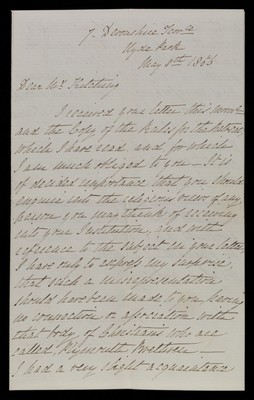 7. Devonshire Terr.ce
Hyde Park
May 8th 1863
Dear Mr.
I received your letter this morn.g
and the Copy of the Rules for the
which I have read and for which
I am much obliged to you - It is
of decided importance that you should
enquire into the religious views of any
person you may think of receiving
into your Institution, and with
reference to the subject in your letter,
I have only to express my surprise,
that such a misrepresentation
should have been made to you, having
no connection or association with
that body of Christians who are
called Plymouth Brethren -
I had a very slight acquaintance